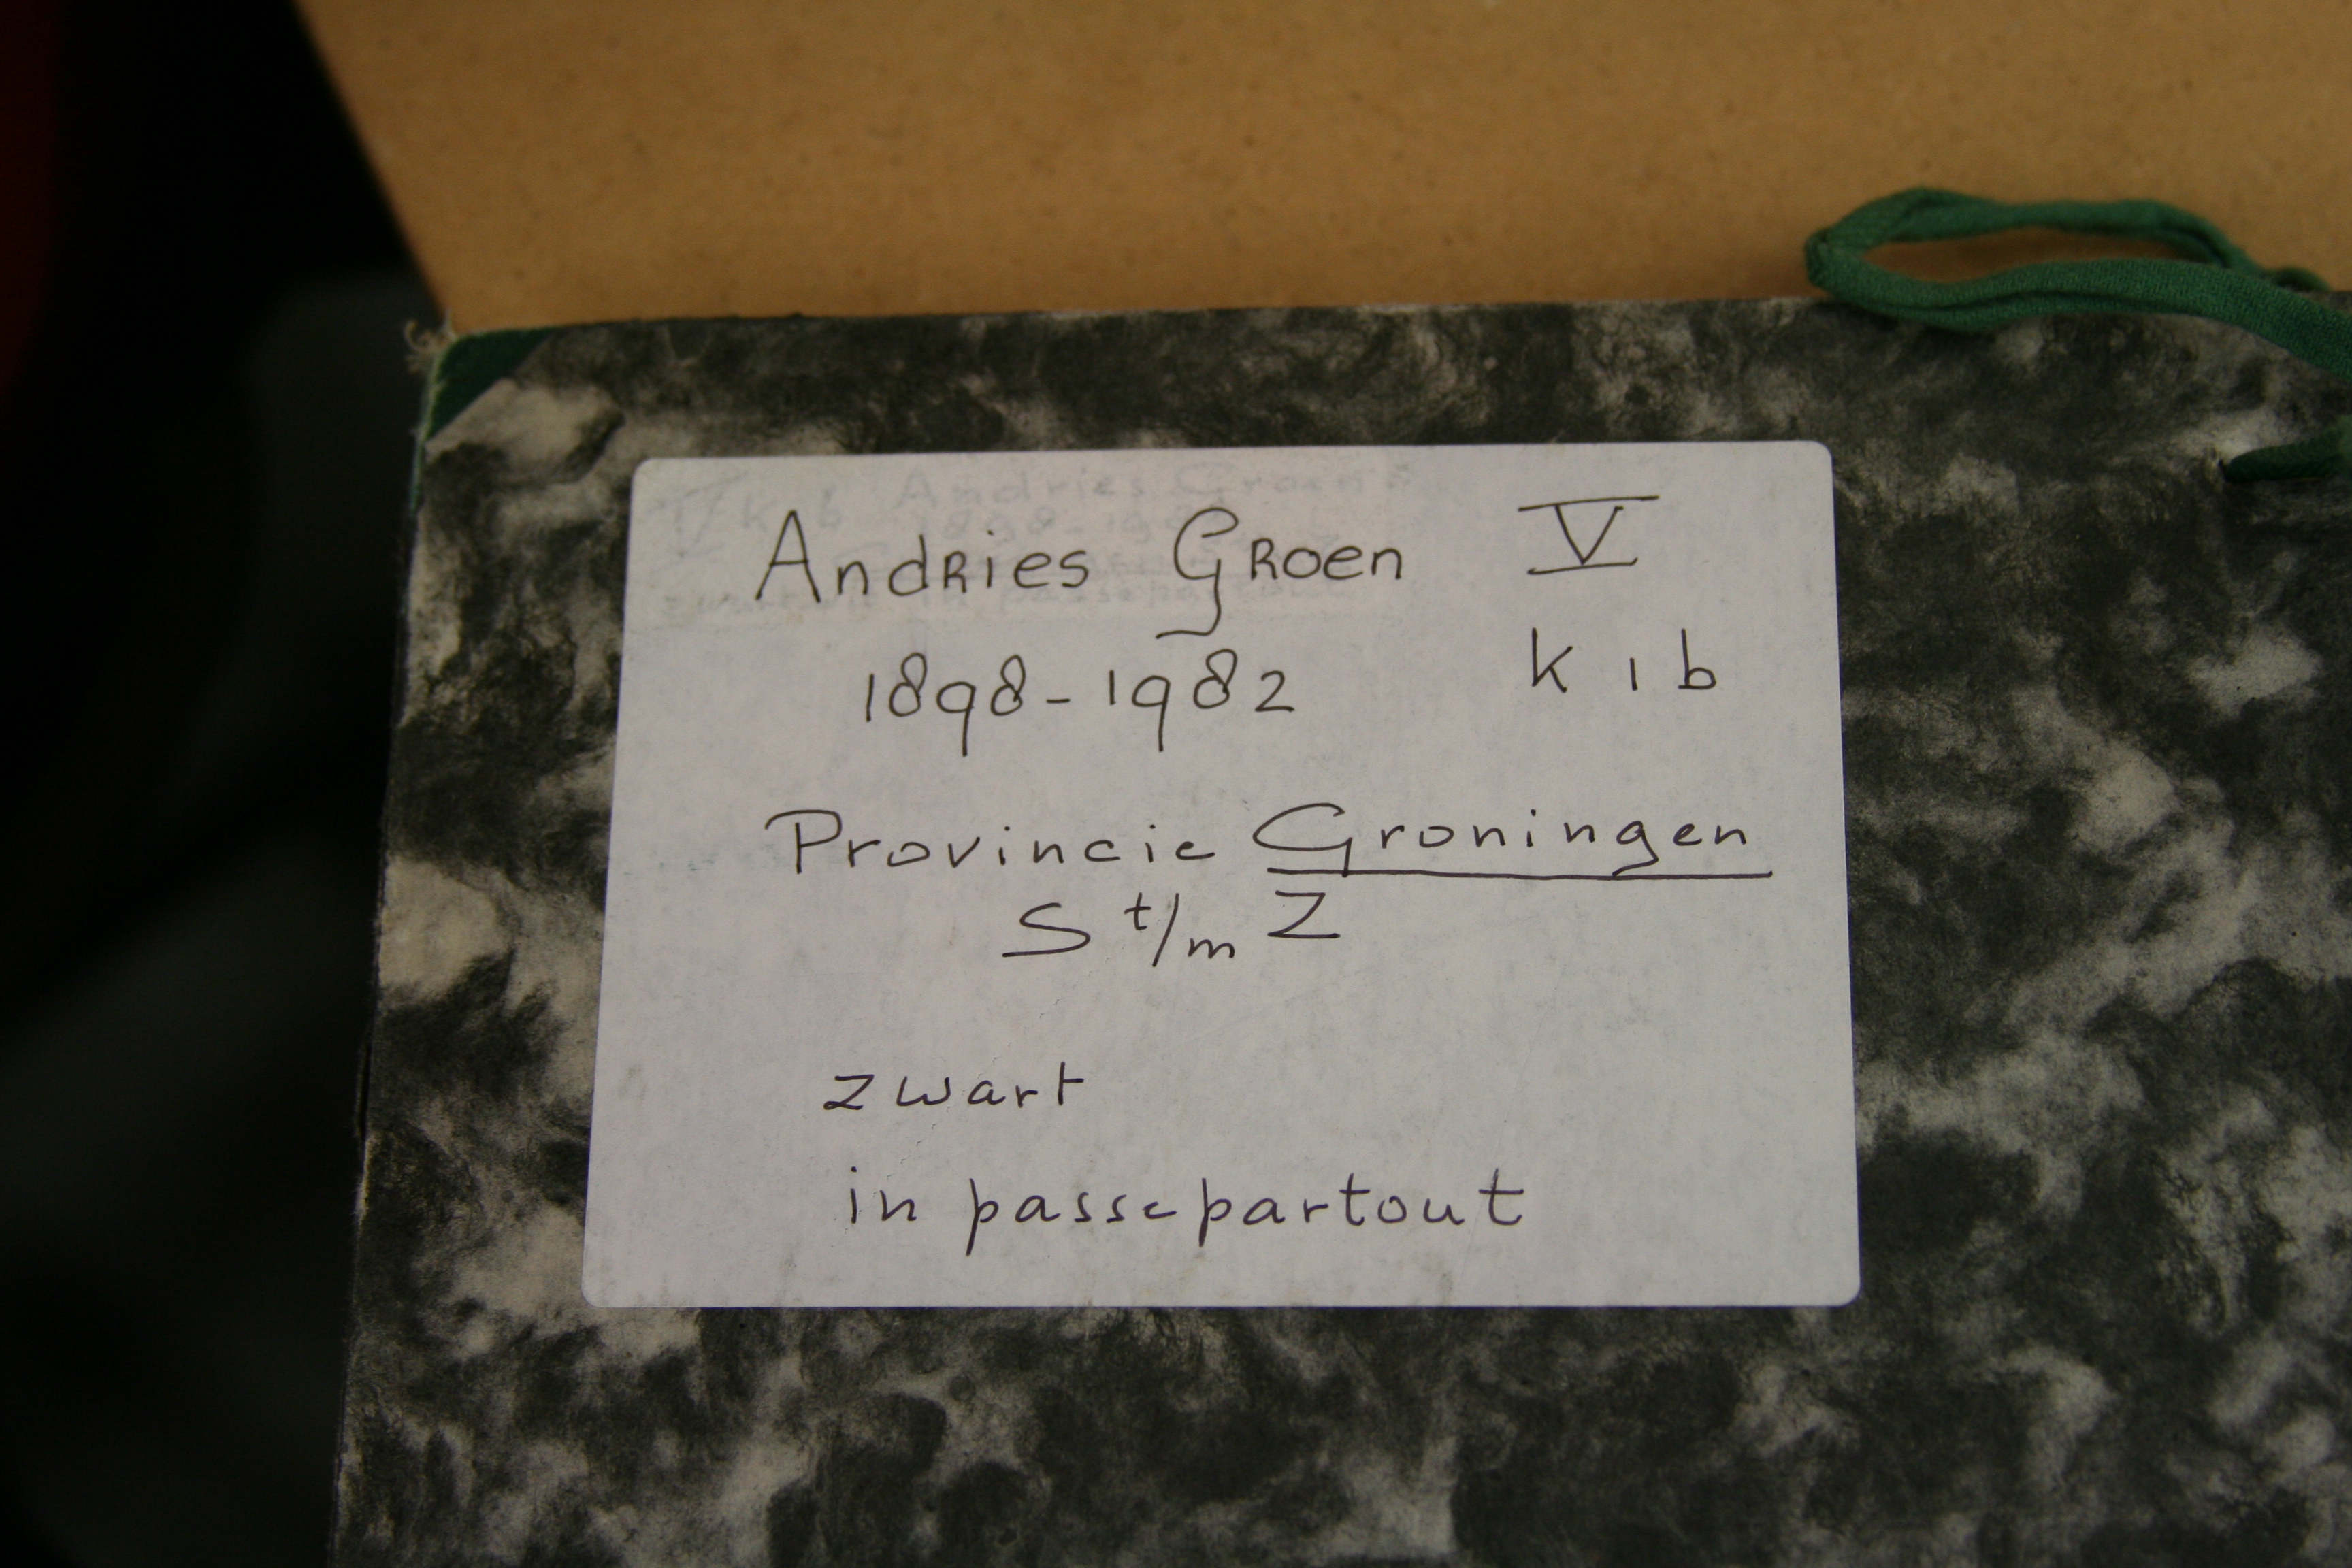 Andries Groen V
1898-1982 k 1 b
Provincie Groningen
S t/m Z
zwart
in passepartout